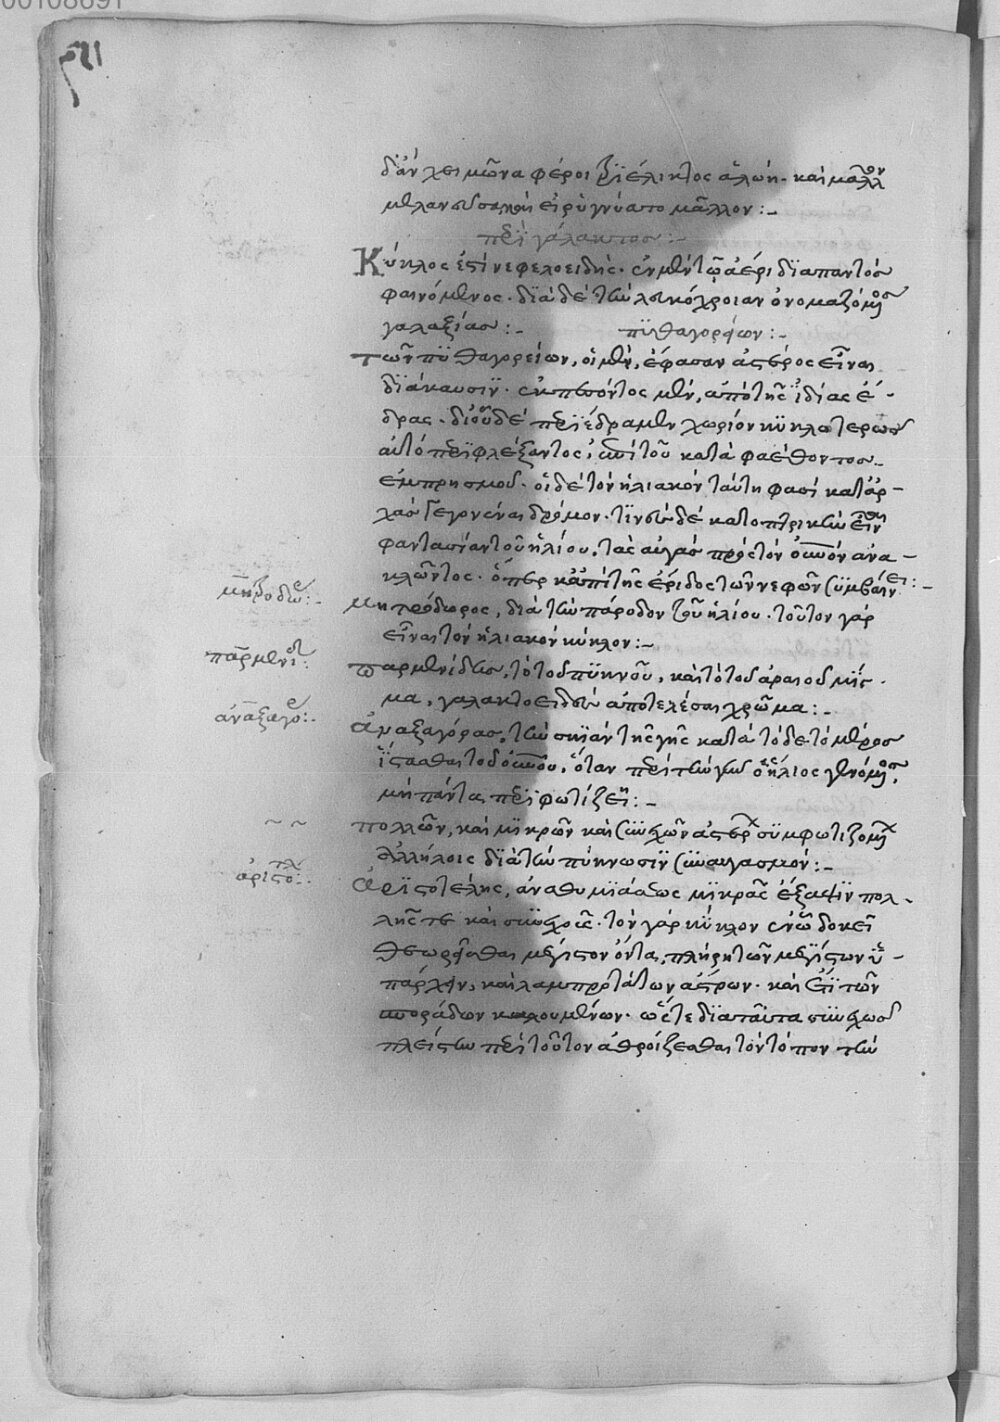 00108691
δ' ἂν χειμῶνα φέροι τριέλικτος ἀλωή. καὶ μᾶλλον
μελανεῦσα, καὶ εἰ ῥηγνύατο μᾶλλον:-
περὶ γάλακτος:-
Κύκλος ἐστὶ νεφελοειδής. ἐν μὲν τῷ ἀέρι διαπαντὸς
φαινόμενος. διὰ δὲ τὴν λευκόχροιαν ὀνομαζόμενος
γαλαξίας:- πυθαγορείων:-
τῶν πυθαγορείων, οἱ μὲν, ἔφασαν ἀστέρος εἶναι
διάκαυσιν. ἐκπεσόντος μὲν, ἀπὸ τῆς ἰδίας ἕ-
δρας. δι' οὗ δὲ περιέδραμεν χωρίον κυκλοτερῶς
αὐτὸ περιφλέξαντος, ἐπὶ τοῦ κατὰ φαέθοντος
ἐμπρησμοῦ. οἱ δὲ τὸν ἡλιακὸν ταύτῃ φασὶ κατ' ἀρ-
χὰς γεγονέναι δρόμον. τινὲς δὲ κατοπτρικὴν εἶναι
φαντασίαν τοῦ ἡλίου, τὰς αὐγὰς πρὸς τὸν οὐρανὸν ἀνα-
κλῶντος. ὅπερ κἀπὶ τῆς ἔριδος τῶν νεφῶν συμβαίνει:-
μητρόδωρος:-
μητρόδωρος, διὰ τὴν πάροδον τοῦ ἡλίου. τοῦτον γὰρ
εἶναι τὸν ἡλιακὸν κύκλον:-
παρμενίδης:
παρμενίδης, τὸ τοῦ πυκνοῦ, καὶ τὸ τοῦ ἀραιοῦ μίγ-
μα, γαλακτοειδὲς ἀποτελέσαι χρῶμα:-
ἀναξαγόρας:-
ἀναξαγόρας, τὴν σκιὰν τῆς γῆς κατὰ τόδε τὸ μέρος
ἵστασθαι τοῦ οὐρανοῦ, ὅταν περὶ τὴν γῆν ὁ ἥλιος γενόμενος,
μὴ πάντα περιφωτίζει:-
πολλῶν, καὶ μικρῶν καὶ συνεχῶν ἀστέρων συμφωτιζομένων
ἀλλήλοις διὰ τὴν πύκνωσιν συναυγασμόν:-
ἀριστοτέλης:-
Ἀριστοτέλης, ἀναθυμιάσεως μικρᾶς ἔξαψιν πολ-
λῆς τε καὶ συνεχοῦς. τὸν γὰρ κύκλον ἐν ᾧ δοκεῖ
θεωρεῖσθαι μέγιστον ὄντα, πλήρη τῶν μεγίστων ὑ-
πάρχειν, καὶ λαμπροτάτων ἄστρων. καὶ ἔτι τῶν
σποράδων καλουμένων. ὥστε διὰ ταῦτα συνεχῶς
πλείστην περὶ τοῦτον ἀθροίζεσθαι τὸν τόπον τὴν